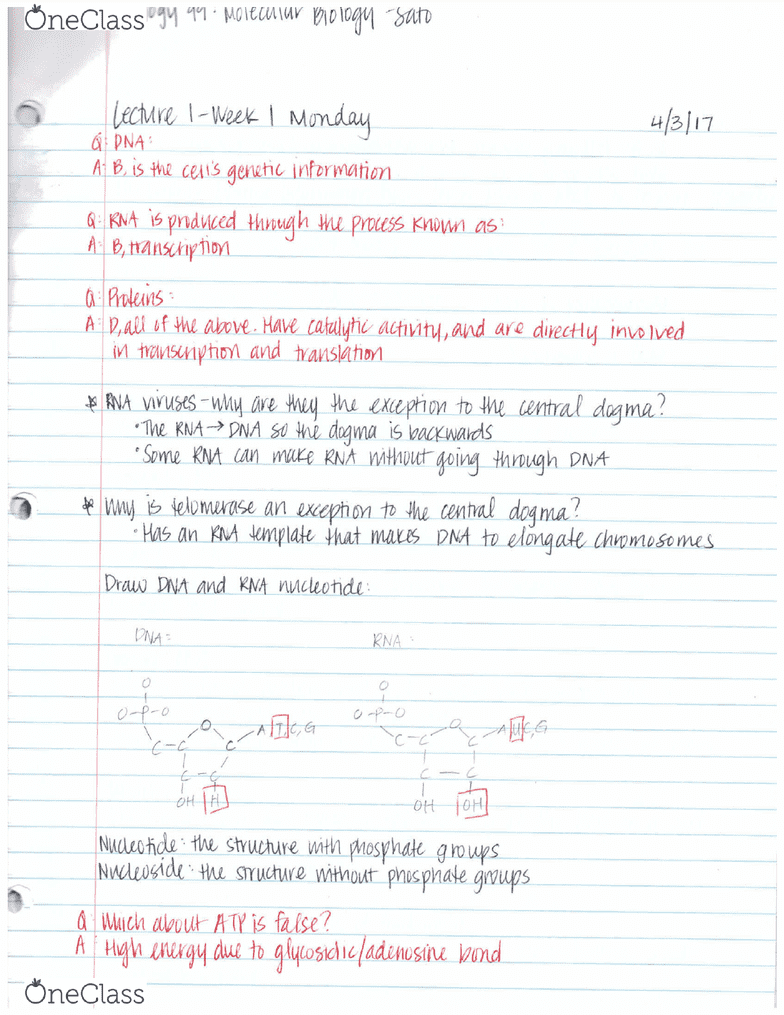 OneClass ogy 99 · Molecular Biology - Sato
Lecture 1 - Week 1 Monday 4/3/17
Q: DNA:
A: B, is the cell's genetic information
Q: RNA is produced through the process known as:
A: B, transcription
Q: Proteins:
A: D, all of the above. Have catalytic activity, and are directly involved
in transcription and translation
* RNA viruses - why are they the exception to the central dogma?
• The RNA → DNA so the dogma is backwards
• Some RNA can make RNA without going through DNA
* Why is telomerase an exception to the central dogma?
• Has an RNA template that makes DNA to elongate chromosomes
Draw DNA and RNA nucleotide:
DNA: RNA:
O O
O-P-O O-P-O
O A T, C, G O A U, C, G
C-C C C-C C
C-C C-C
OH H OH OH
Nucleotide: the structure with phosphate groups
Nucleoside: the structure without phosphate groups
Q Which about ATP is false?
A High energy due to glycosidic/adenosine bond
OneClass